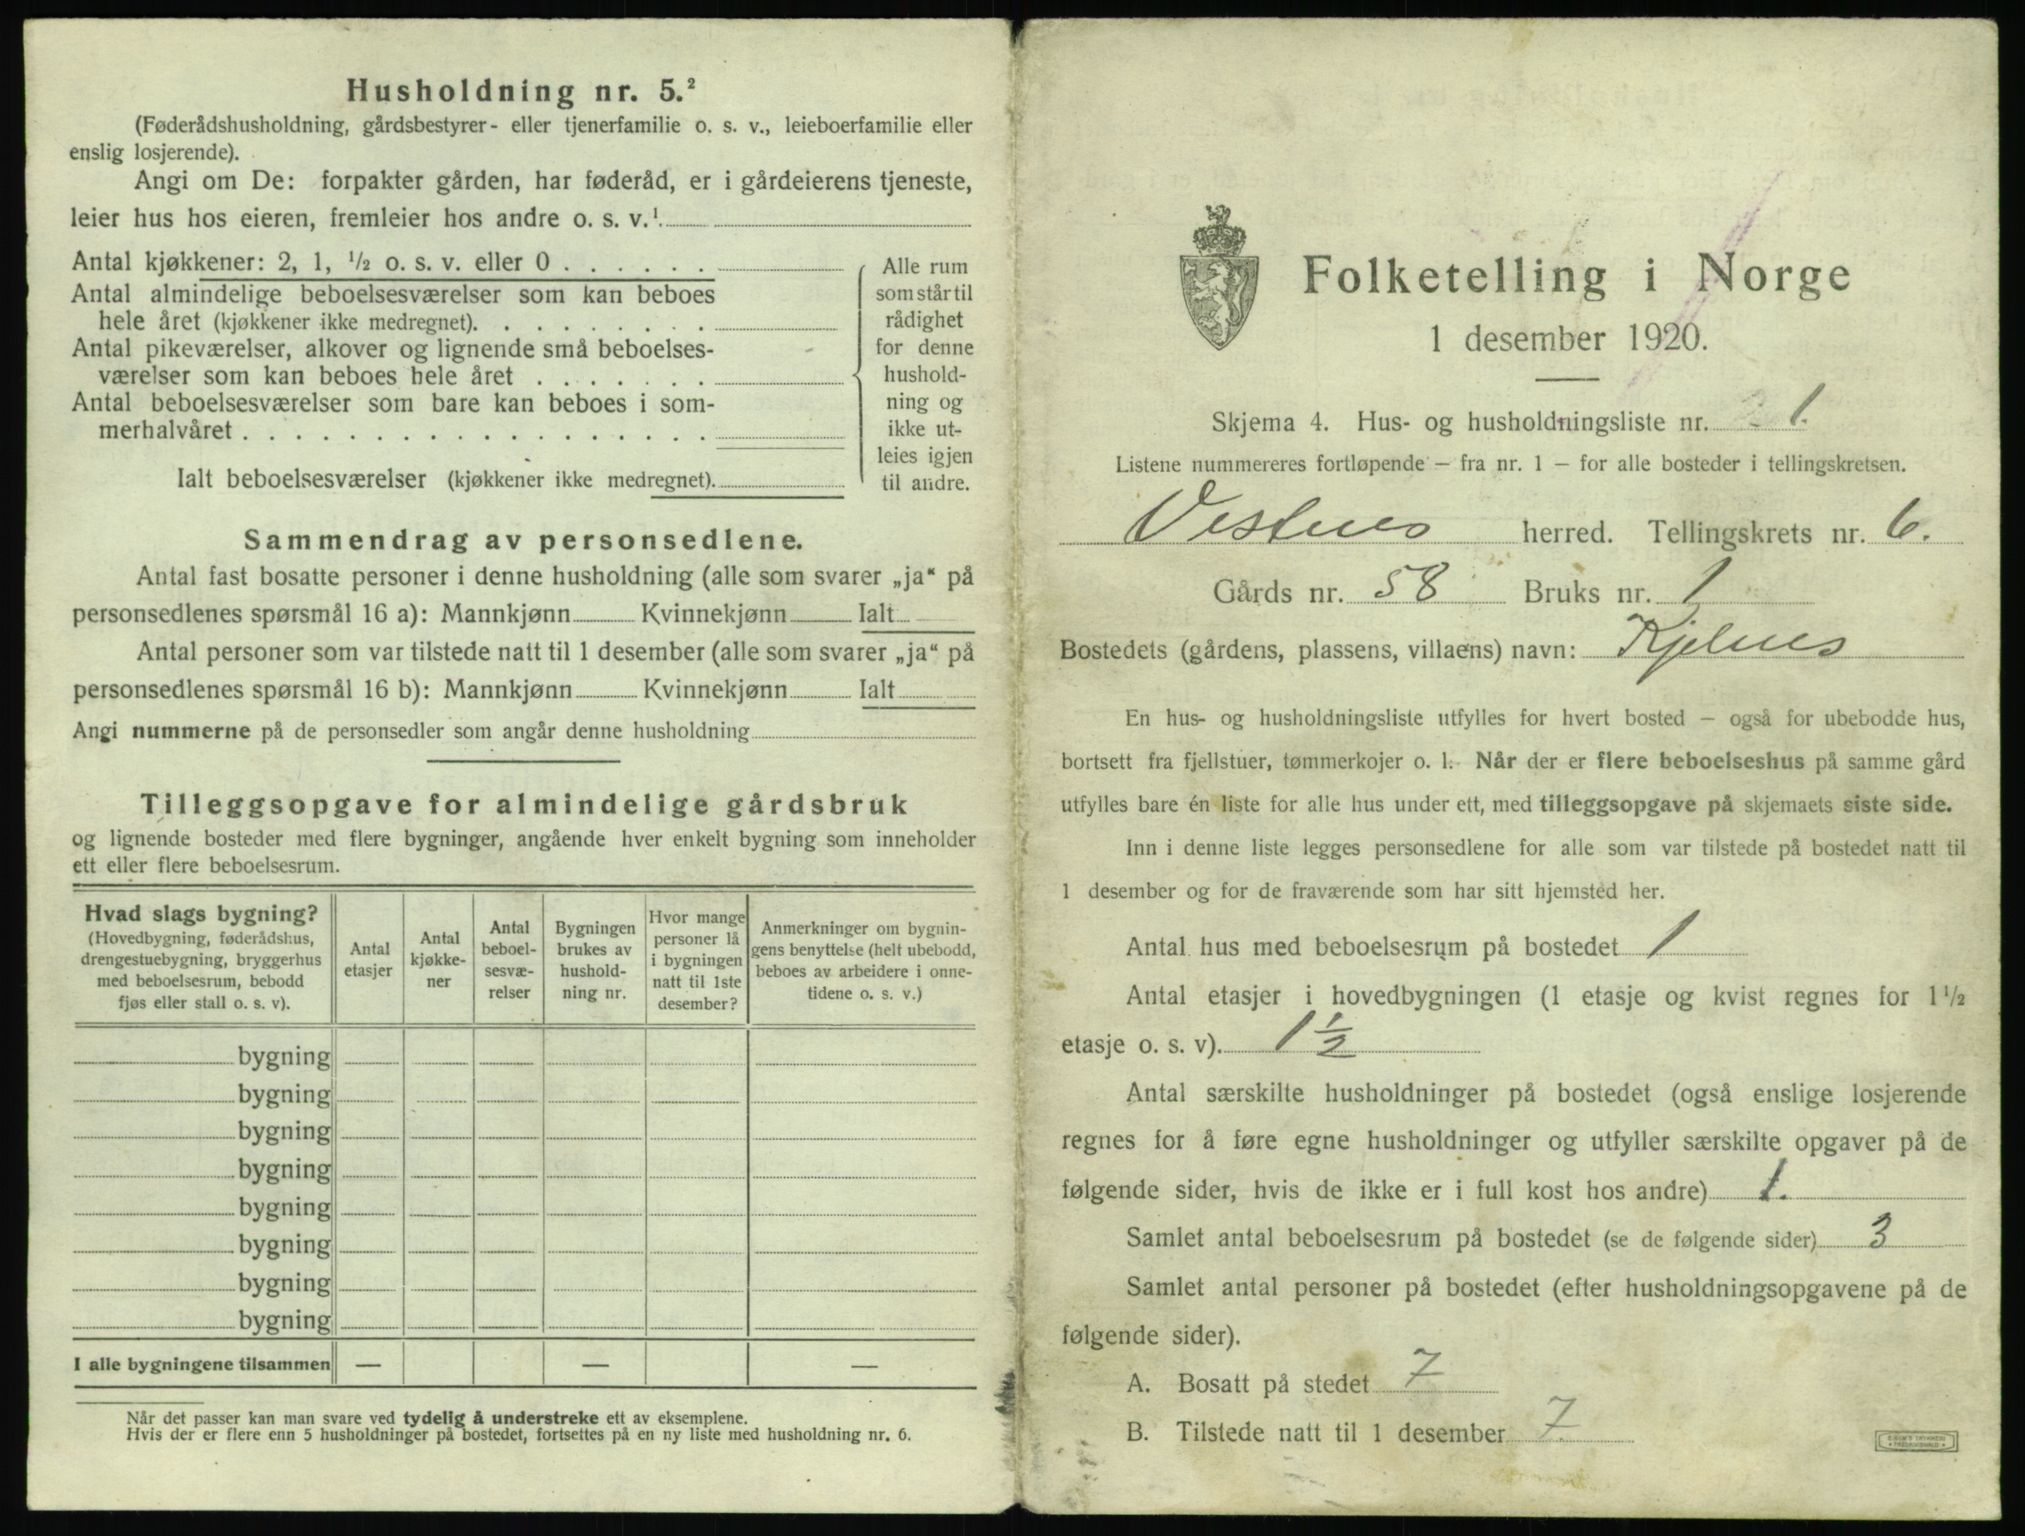 Husholdning nr. 5.²
(Føderådshusholdning, gårdsbestyrer- eller tjenerfamilie o. s. v., leieboerfamilie eller
enslig losjerende).
Angi om De: forpakter gården, har føderåd, er i gårdeierens tjeneste,
leier hus hos eieren, fremleier hos andre o. s. v.¹
Antal kjøkkener: 2, 1, ½ o. s. v. eller 0 . . . . . .
Antal almindelige beboelsesværelser som kan beboes
hele året (kjøkkener ikke medregnet). . . . . . . . .
Antal pikeværelser, alkover og lignende små beboelses-
værelser som kan beboes hele året . . . . . . .
Antal beboelsesværelser som bare kan beboes i som-
merhalvåret . . . . . . . . . . . . . . . . . .
Ialt beboelsesværelser (kjøkkener ikke medregnet).
Alle rum
som står til
rådighet
for denne
hushold-
ning og
ikke ut-
leies igjen
til andre.
Sammendrag av personsedlene.
Antal fast bosatte personer i denne husholdning (alle som svarer „ja“ på
personsedlenes spørsmål 16 a): Mannkjønn Kvinnekjønn Ialt
Antal personer som var tilstede natt til 1 desember (alle som svarer „ja“ på
personsedlenes spørsmål 16 b): Mannkjønn Kvinnekjønn Ialt
Angi nummerne på de personsedler som angår denne husholdning
Tilleggsopgave for almindelige gårdsbruk
og lignende bosteder med flere bygninger, angående hver enkelt bygning som inneholder
ett eller flere beboelsesrum.
Hvad slags bygning?
(Hovedbygning, føderådshus,
drengestuebygning, bryggerhus
med beboelsesrum, bebodd
fjøs eller stall o. s. v).
Antal
etasjer
Antal
kjøkke-
ner
Antal
beboel-
sesvæ-
relser
Bygningen
brukes av
hushold-
ning nr.
Hvor mange
personer lå
i bygningen
natt til 1ste
desember?
Anmerkninger om bygnin-
gens benyttelse (helt ubebodd,
beboes av arbeidere i onne-
tidene o. s. v.)
bygning
bygning
bygning
bygning
bygning
bygning
bygning
bygning
I alle bygningene tilsammen — — —
Når det passer kan man svare ved tydelig å understreke ett av eksemplene.
Hvis der er flere enn 5 husholdninger på bostedet, fortsettes på en ny liste med husholdning nr. 6.
Folketelling i Norge
1 desember 1920.
Skjema 4. Hus- og husholdningsliste nr. 1.
Listene nummereres fortløpende — fra nr. 1 — for alle bosteder i tellingskretsen.
Vestnes herred. Tellingskrets nr. 6.
Gårds nr. 58 Bruks nr. 1
Bostedets (gårdens, plassens, villaens) navn: Kjelnes
En hus- og husholdningsliste utfylles for hvert bosted — også for ubebodde hus,
bortsett fra fjellstuer, tømmerkojer o. l. Når der er flere beboelseshus på samme gård
utfylles bare én liste for alle hus under ett, med tilleggsopgave på skjemaets siste side.
Inn i denne liste legges personsedlene for alle som var tilstede på bostedet natt til
1 desember og for de fraværende som har sitt hjemsted her.
Antal hus med beboelsesrum på bostedet 1
Antal etasjer i hovedbygningen (1 etasje og kvist regnes for 1½
etasje o. s. v). 1½
Antal særskilte husholdninger på bostedet (også enslige losjerende
regnes for å føre egne husholdninger og utfyller særskilte opgaver på de
følgende sider, hvis de ikke er i full kost hos andre) 1.
Samlet antal beboelsesrum på bostedet (se de følgende sider) 3
Samlet antal personer på bostedet (efter husholdningsopgavene på de
følgende sider).
A. Bosatt på stedet 7
B. Tilstede natt til 1 desember 7